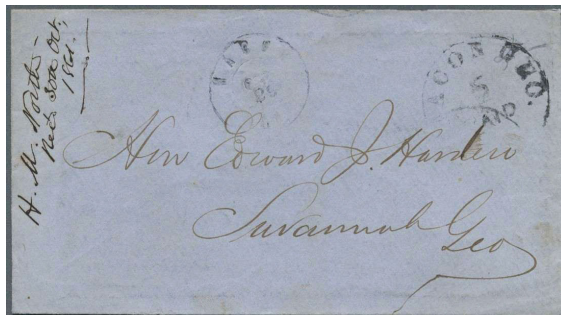 H. M. North
Recd 30th Oct.
1861.
MACON GEO.
5
Hon Edward J. Harden
Savannah
Geo